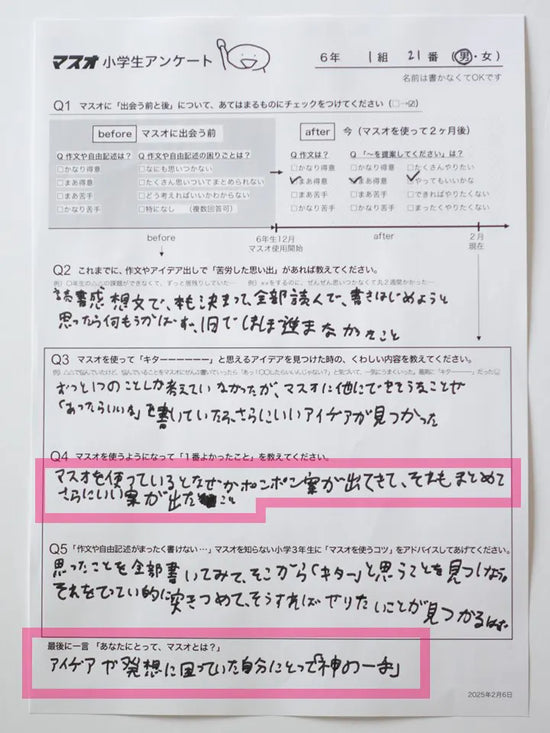 マスオ 小学生アンケート
6年 1組 21番 (男・女)
名前は書かなくてOKです
Q1 マスオに「出会う前と後」について、あてはまるものにチェックをつけてください(□→☑)
before マスオに出会う前
after 今(マスオを使って2ヶ月後)
Q 作文や自由記述は?
□かなり得意
□まあ得意
□まあ苦手
□かなり苦手
Q 作文や自由記述の困りごとは?
□なにも思いつかない
□たくさん思いついてまとめられない
□どう考えればいいかわからない
□特になし (複数回答可)
Q 作文は?
□かなり得意
☑まあ得意
□まあ苦手
□かなり苦手
Q「〜を提案してください」は?
□かなり得意
☑まあ得意
□まあ苦手
□かなり苦手
□たくさんやりたい
☑やってもいいかな
□できればやりたくない
□まったくやりたくない
before
6年生12月
マスオ使用開始
after
2月
現在
Q2 これまでに、作文やアイデア出しで「苦労した思い出」があれば教えてください。
読書感想文で、本も決まって、全部読んで、書きはじめようと
思ったら何もうかばず、1日でほぼ進まなかったこと
Q3 マスオを使って「キターーーーーー」と思えるアイデアを見つけた時の、くわしい内容を教えてください。
ずっと1つのことしか考えていなかったが、マスオに他に
「あったらいいな」を書いていたら、さらにいいアイデアが見つかった
Q4 マスオを使うようになって「1番よかったこと」を教えてください。
マスオを使っているとなぜかポンポン案が出てきて、それをまとめて
さらにいい案が出たこと
Q5 「作文や自由記述がまったく書けない…」マスオを知らない小学3年生に「マスオを使うコツ」をアドバイスしてあげてください。
思ったことを全部書いてみて、そこから「キター」と思うことを見つけよう。
それをてってい的に突きつめて、そうすればやりたいことが見つかるはず
最後に一言「あなたにとって、マスオとは?」
アイデアや発想に困っていた自分にとって「神の一手」
2025年2月6日